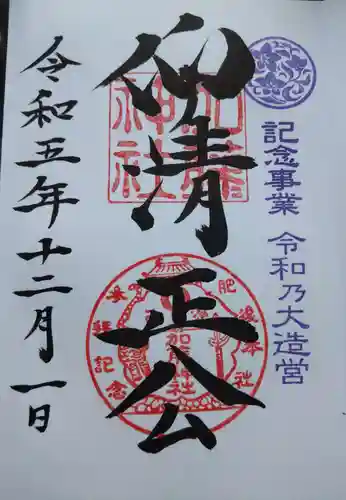 記念事業 令和乃大造営
仰清正公
加藤神社
肥後本
社
参拝記念
加藤神社
令和五年十二月一日